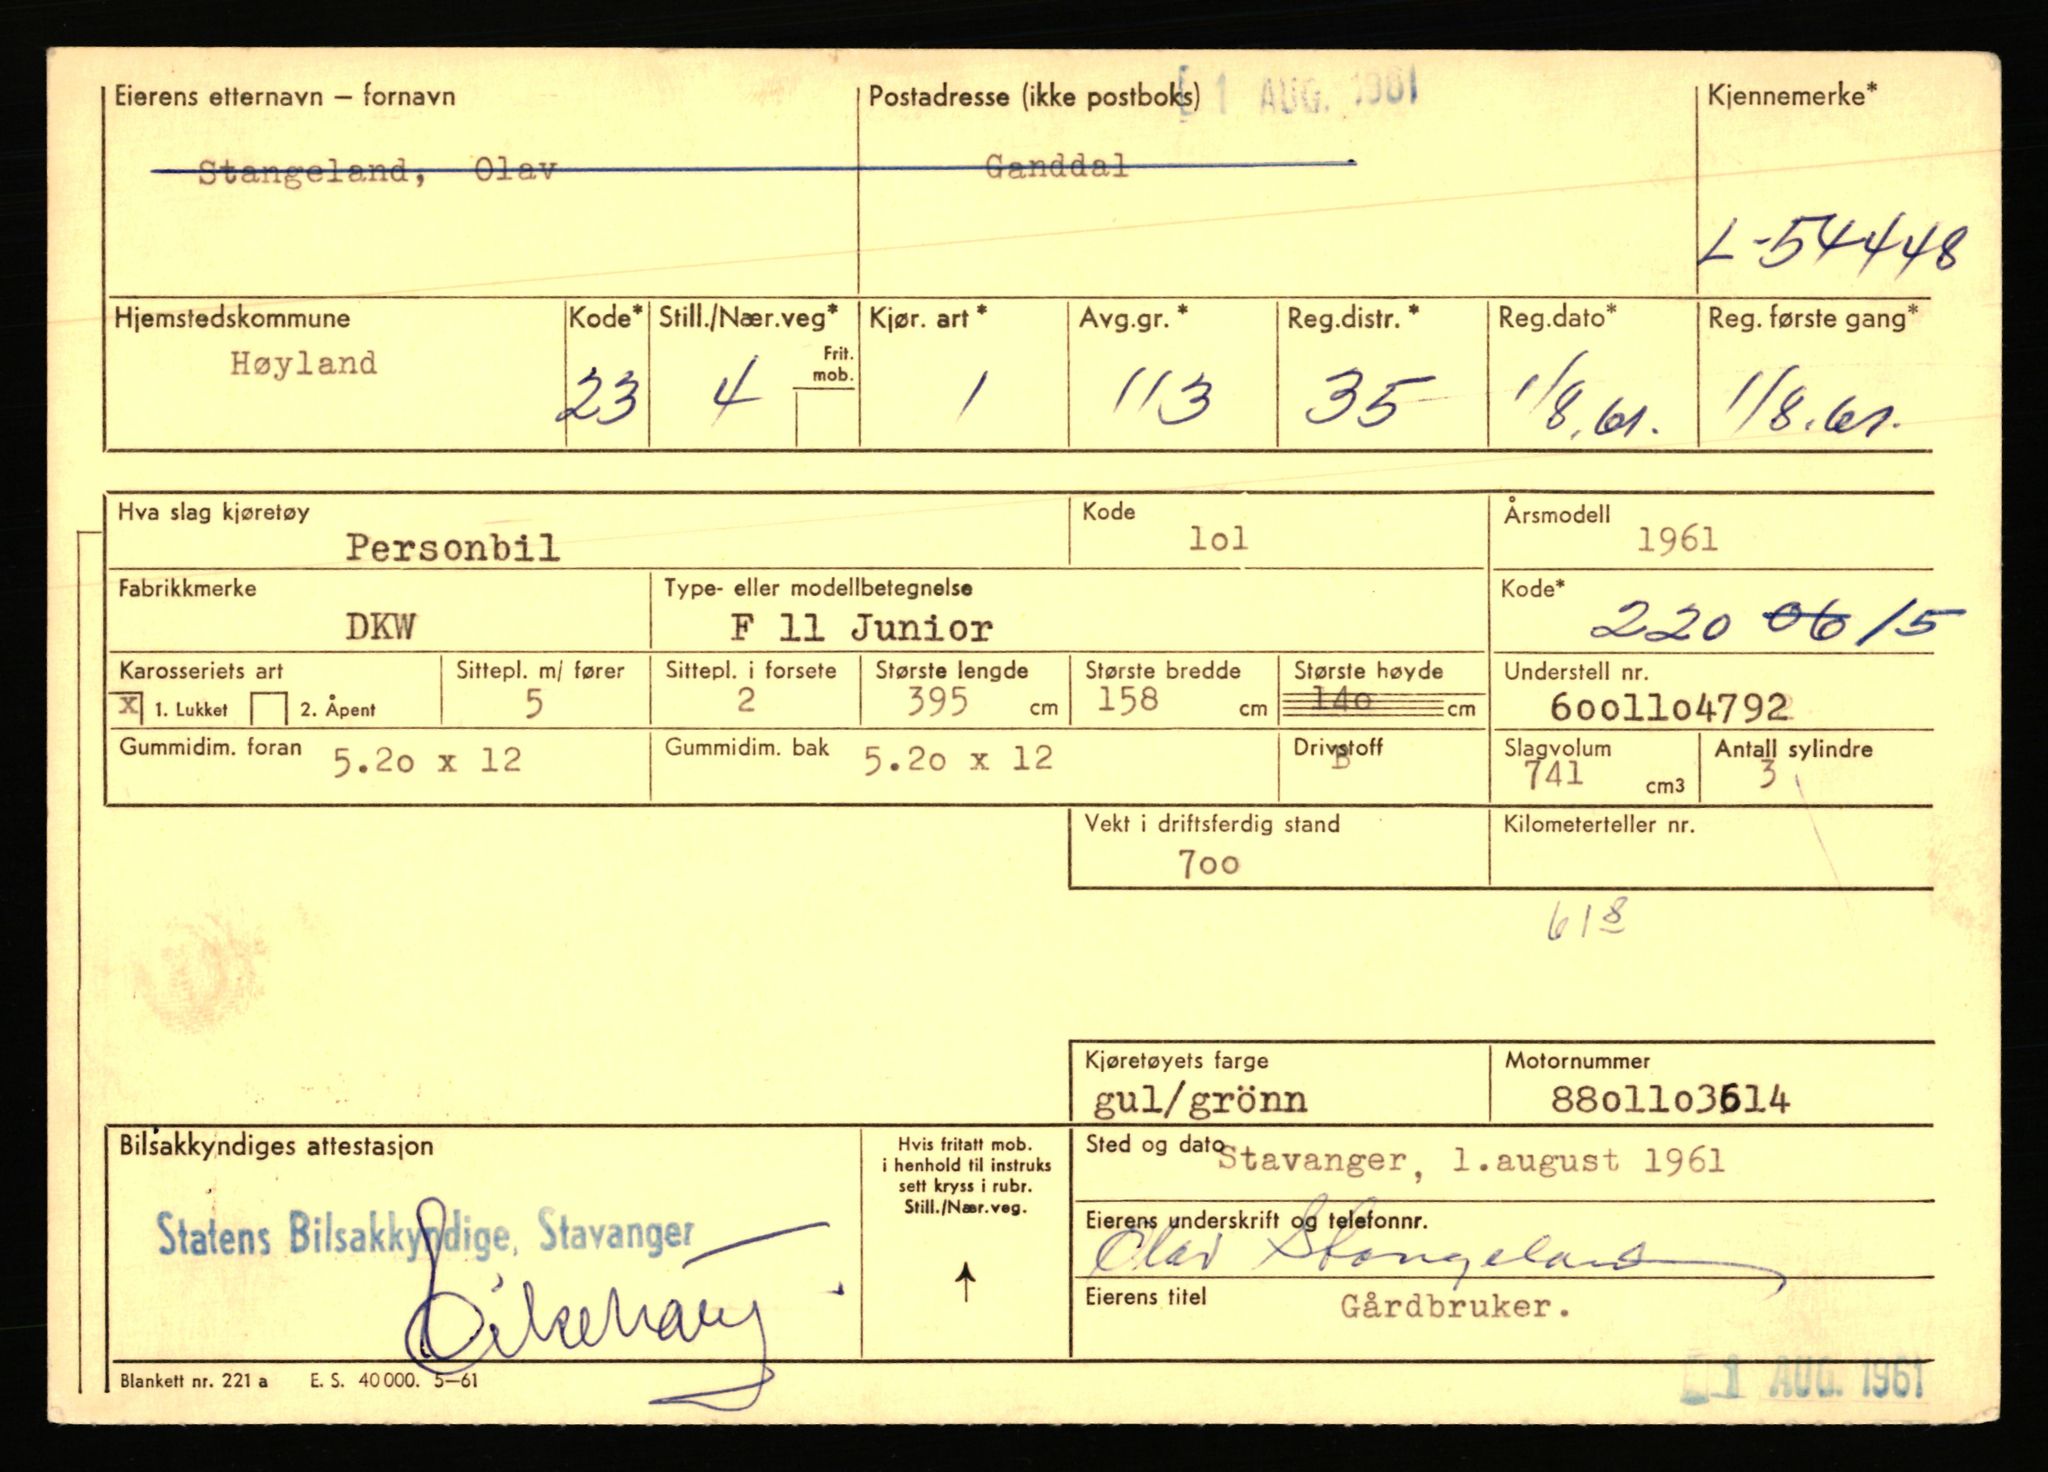 1 AUG. 1961
Eierens etternavn – fornavn Postadresse (ikke postboks) Kjennemerke*
Stangeland, Olav Ganddal
L-54448
Hjemstedskommune Kode* Still./Nær.veg* Kjør. art* Avg.gr.* Reg.distr.* Reg.dato* Reg. første gang*
Høyland Frit. mob.
23 4 1 113 35 1/8.61. 1/8.61.
Hva slag kjøretøy Kode Årsmodell
Personbil 1o1 1961
Fabrikkmerke Type- eller modellbetegnelse Kode*
DKW F 11 Junior 220 06 15
Karosseriets art Sittepl. m/ fører Sittepl. i forsete Største lengde Største bredde Største høyde Understell nr.
x 1. Lukket 2. Åpent 5 2 395 cm 158 cm 14o cm 6oo11o4792
Gummidim. foran 5.2o x 12 Gummidim. bak 5.2o x 12 Drivstoff B Slagvolum 741 cm3 Antall sylindre 3
Vekt i driftsferdig stand Kilometerteller nr.
7oo
61 8
Kjøretøyets farge Motornummer
gul/grönn 88o11o3614
Bilsakkyndiges attestasjon Hvis fritatt mob. Sted og dato Stavanger, 1.august 1961
i henhold til instruks
sett kryss i rubr.
Still./Nær.veg.
Statens Bilsakkyndige, Stavanger Eierens underskrift og telefonnr.
Olav Stangeland
Eierens titel Gårdbruker.
Blankett nr. 221 a E. S. 40 000. 5–61 1 AUG. 1961